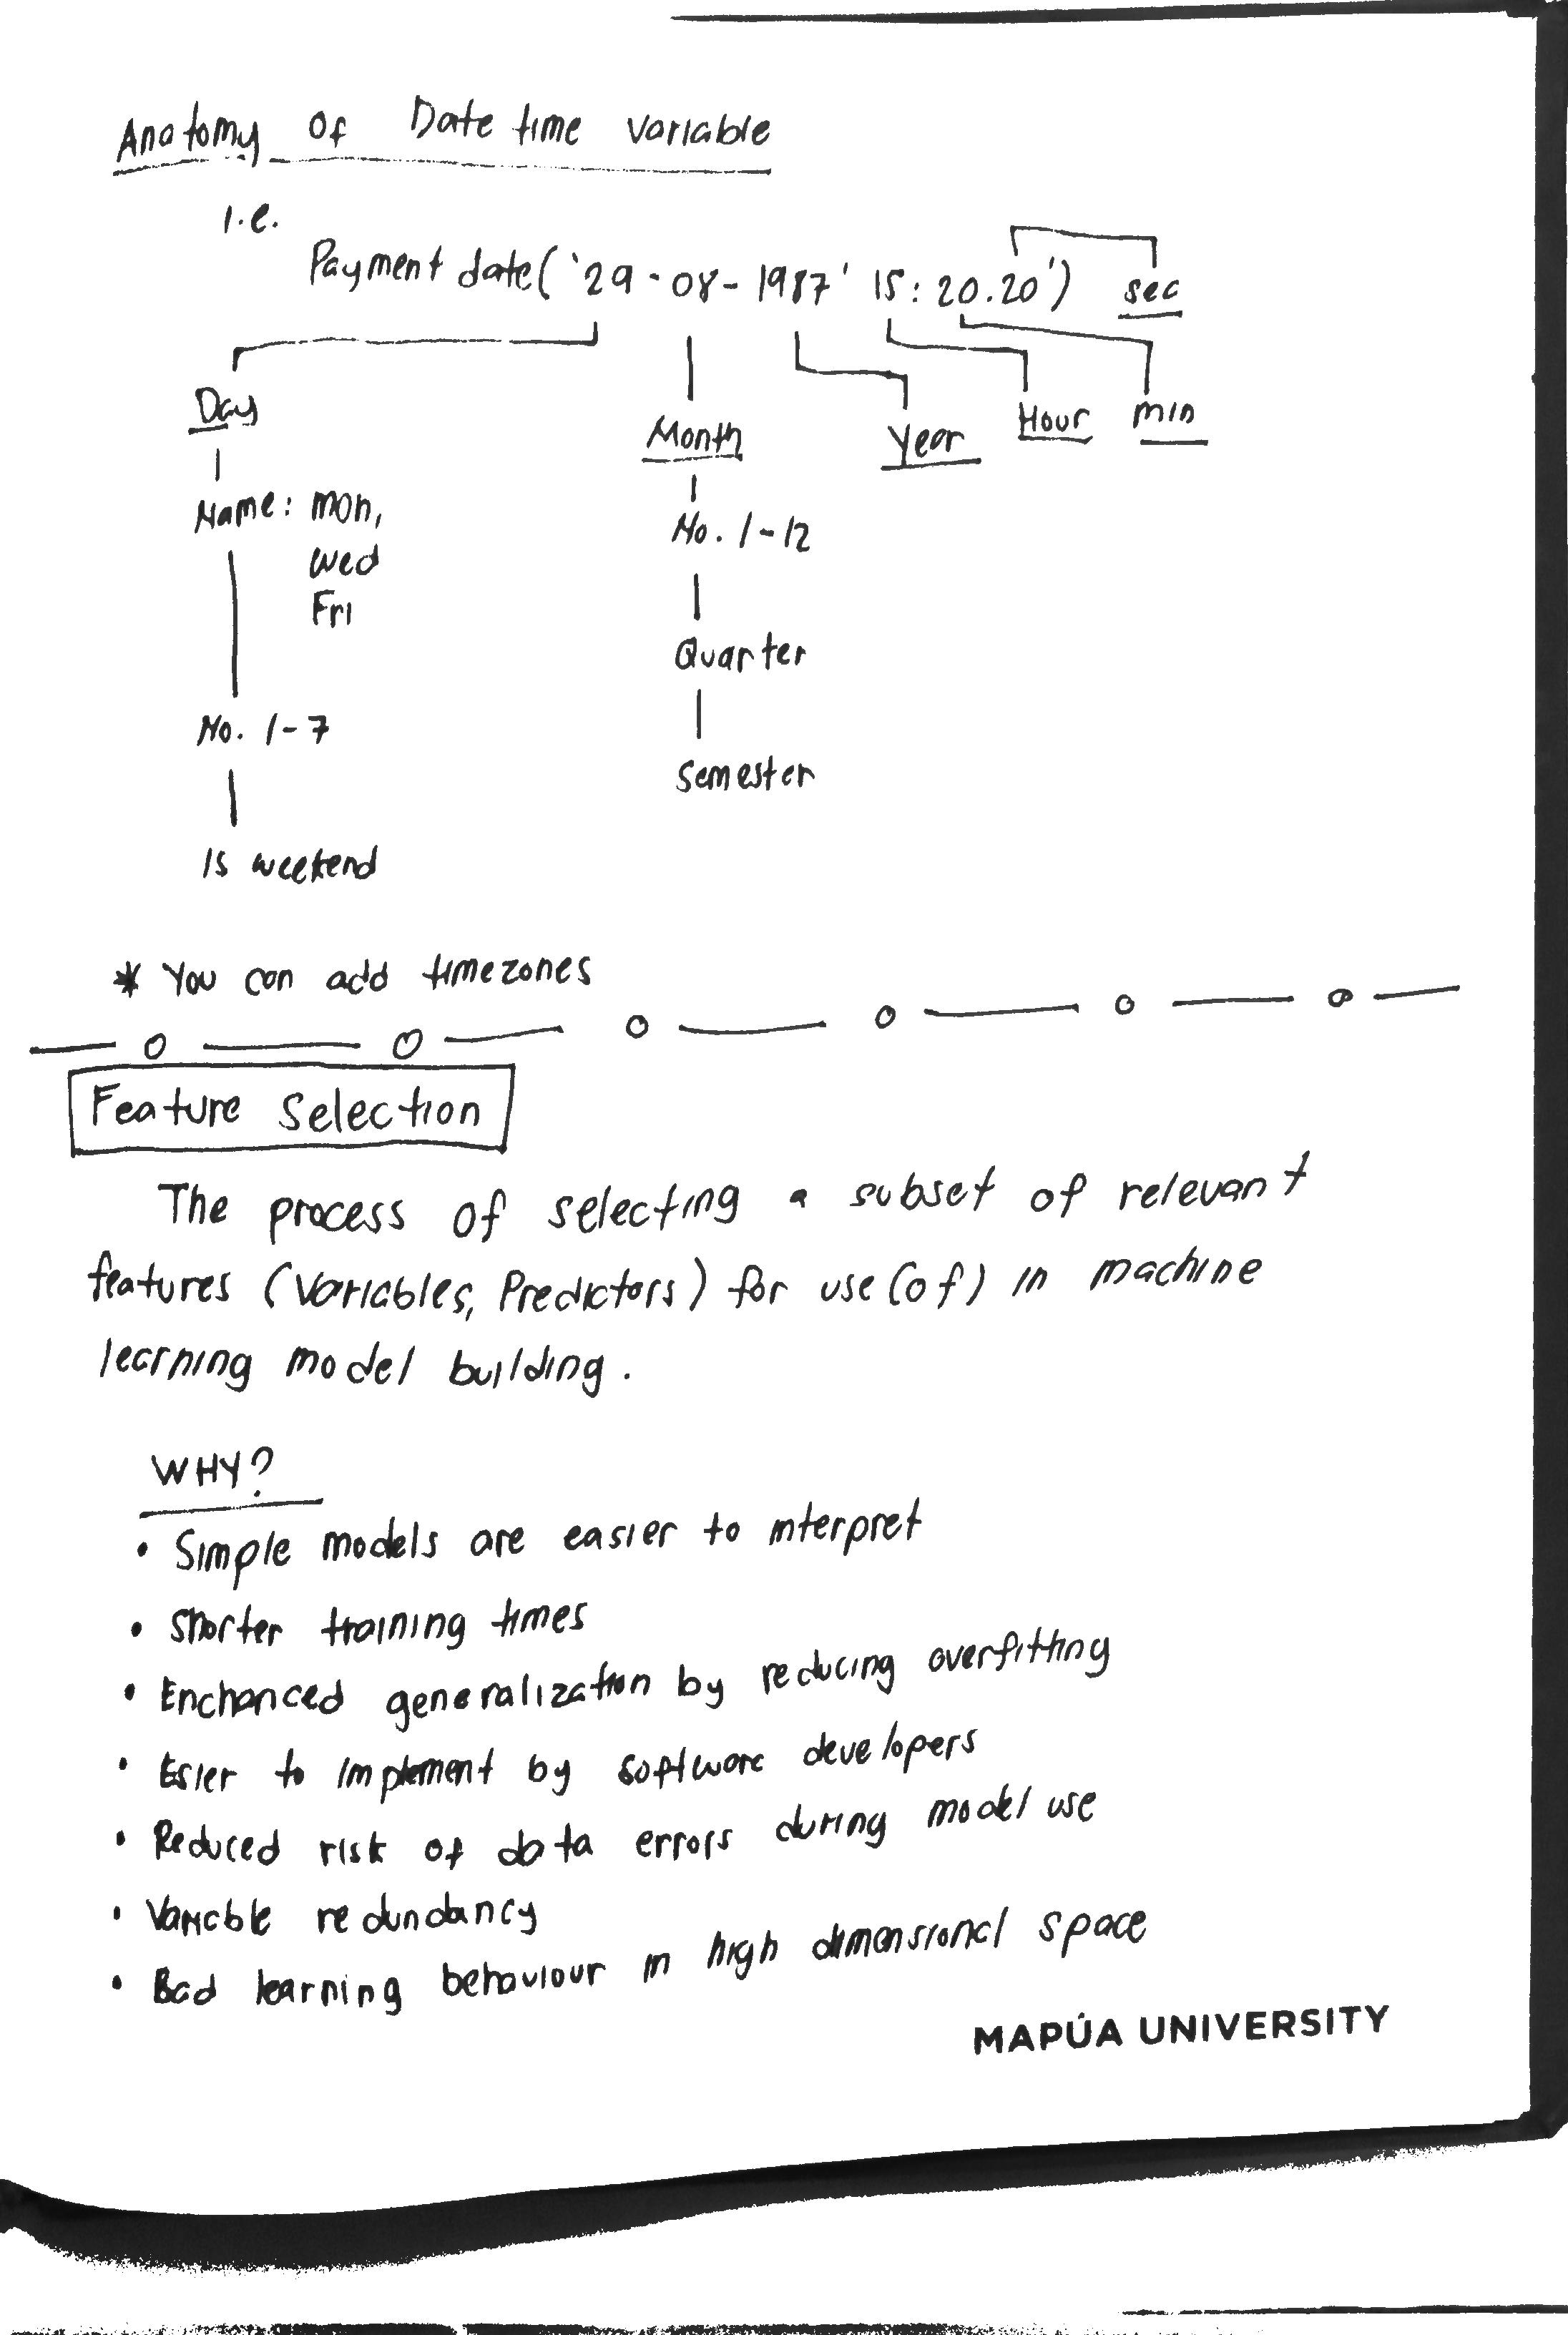 Anatomy of Date time variable
i.e.
Payment date('29-08-1987' 15:20.20') sec
Day Month Year Hour min
Name: mon,
Wed
Fri
No. 1-12
Quarter
No. 1-7
Semester
Is weekend
* You can add timezones
Feature Selection
The process of selecting a subset of relevant
features (Variables, Predictors) for use (of) in machine
learning model building.
WHY?
• Simple models are easier to interpret
• Shorter training times
• Enchanced generalization by reducing overfitting
• Esier to implement by software developers
• Reduced risk of data errors during model use
• Variable redundancy
• Bad learning behaviour in high dimensional space
MAPÚA UNIVERSITY